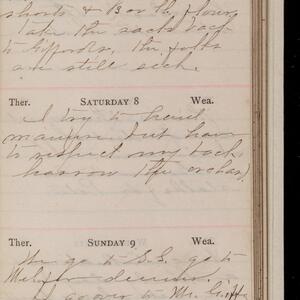 shorts & B or the flour
take the sacks back
to Giffords, the folks
are still sick.
Ther. SATURDAY 8 Wea.
I try to haul
manure but have
to respect my back
harrow the orchard
Ther. SUNDAY 9 Wea.
We go to S.S. go to
for dinner.
go over to Mr.